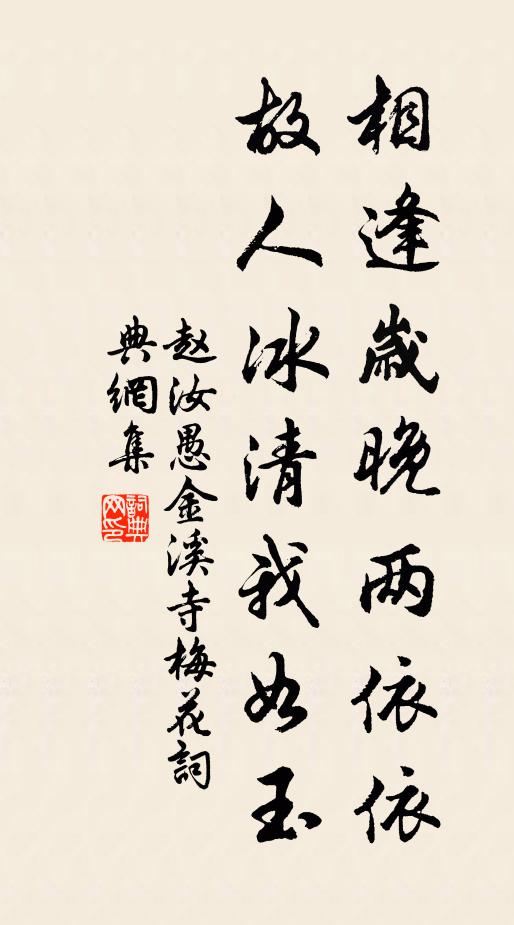 相逢歲晚两依依
故人冰清我如玉
赵汝愚金溪寺梅花詞
典網集
詞典网印